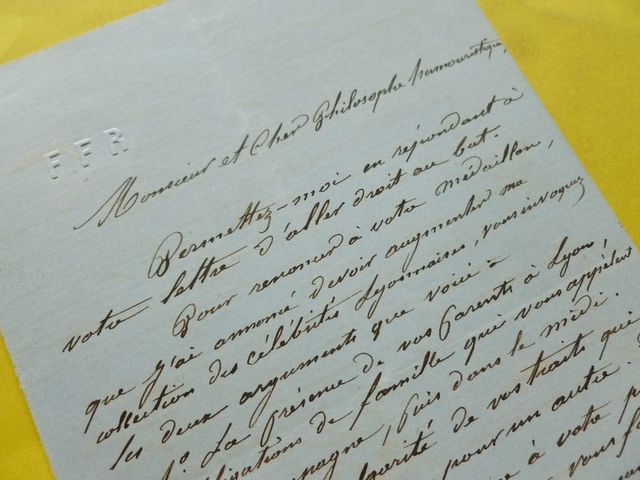 F. F R
Monsieur et Cher Philosophe humouristique,
Permettez-moi en répondant à
votre lettre d'aller droit au but.
Pour renoncer à votre médaillon,
que j'ai annoncé devoir augmenter ma
collection des célébrités Lyonnaises, vous invoquez
les deux arguments que voici =
1o La présence de vos Parents à Lyon,
obligations de famille qui vous appèlent
campagne, puis dans le midi.
de vos traits qui
pour un autre.
à votre
vous